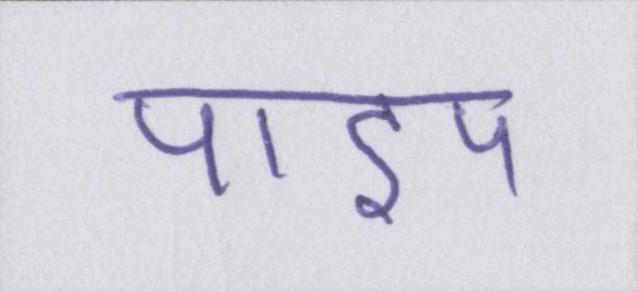 पाइप